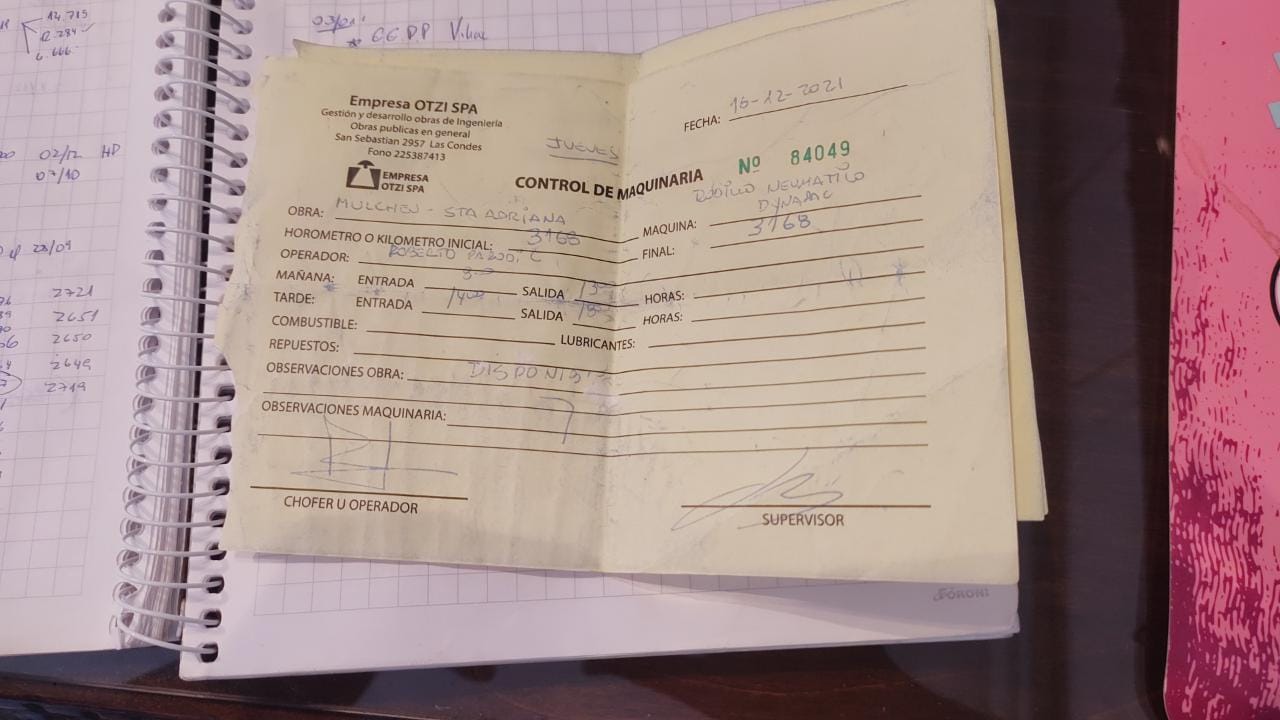 14.715
12.284
6.666
03/01
CGDP
02/12 HP
07/10
28/09
2721
2651
2650
2649
2719
Empresa OTZI SPA
Gestión y desarrollo obras de Ingeniería
Obras publicas en general
San Sebastian 2957 Las Condes
Fono 225387413
EMPRESA
OTZI SPA
JUEVES
FECHA: 16-12-2021
Nº 84049
CONTROL DE MAQUINARIA
OBRA: MULCHEN - STA ADRIANA
MAQUINA: RODILLO NEUMATICO
DYNAPAC
HOROMETRO O KILOMETRO INICIAL: 3168 FINAL: 3168
OPERADOR: ROBERTO
MAÑANA: ENTRADA 8:00 SALIDA 13:00 HORAS:
TARDE: ENTRADA 14:00 SALIDA 18:00 HORAS:
COMBUSTIBLE: LUBRICANTES:
REPUESTOS:
OBSERVACIONES OBRA:
OBSERVACIONES MAQUINARIA:
CHOFER U OPERADOR
SUPERVISOR
FORONI